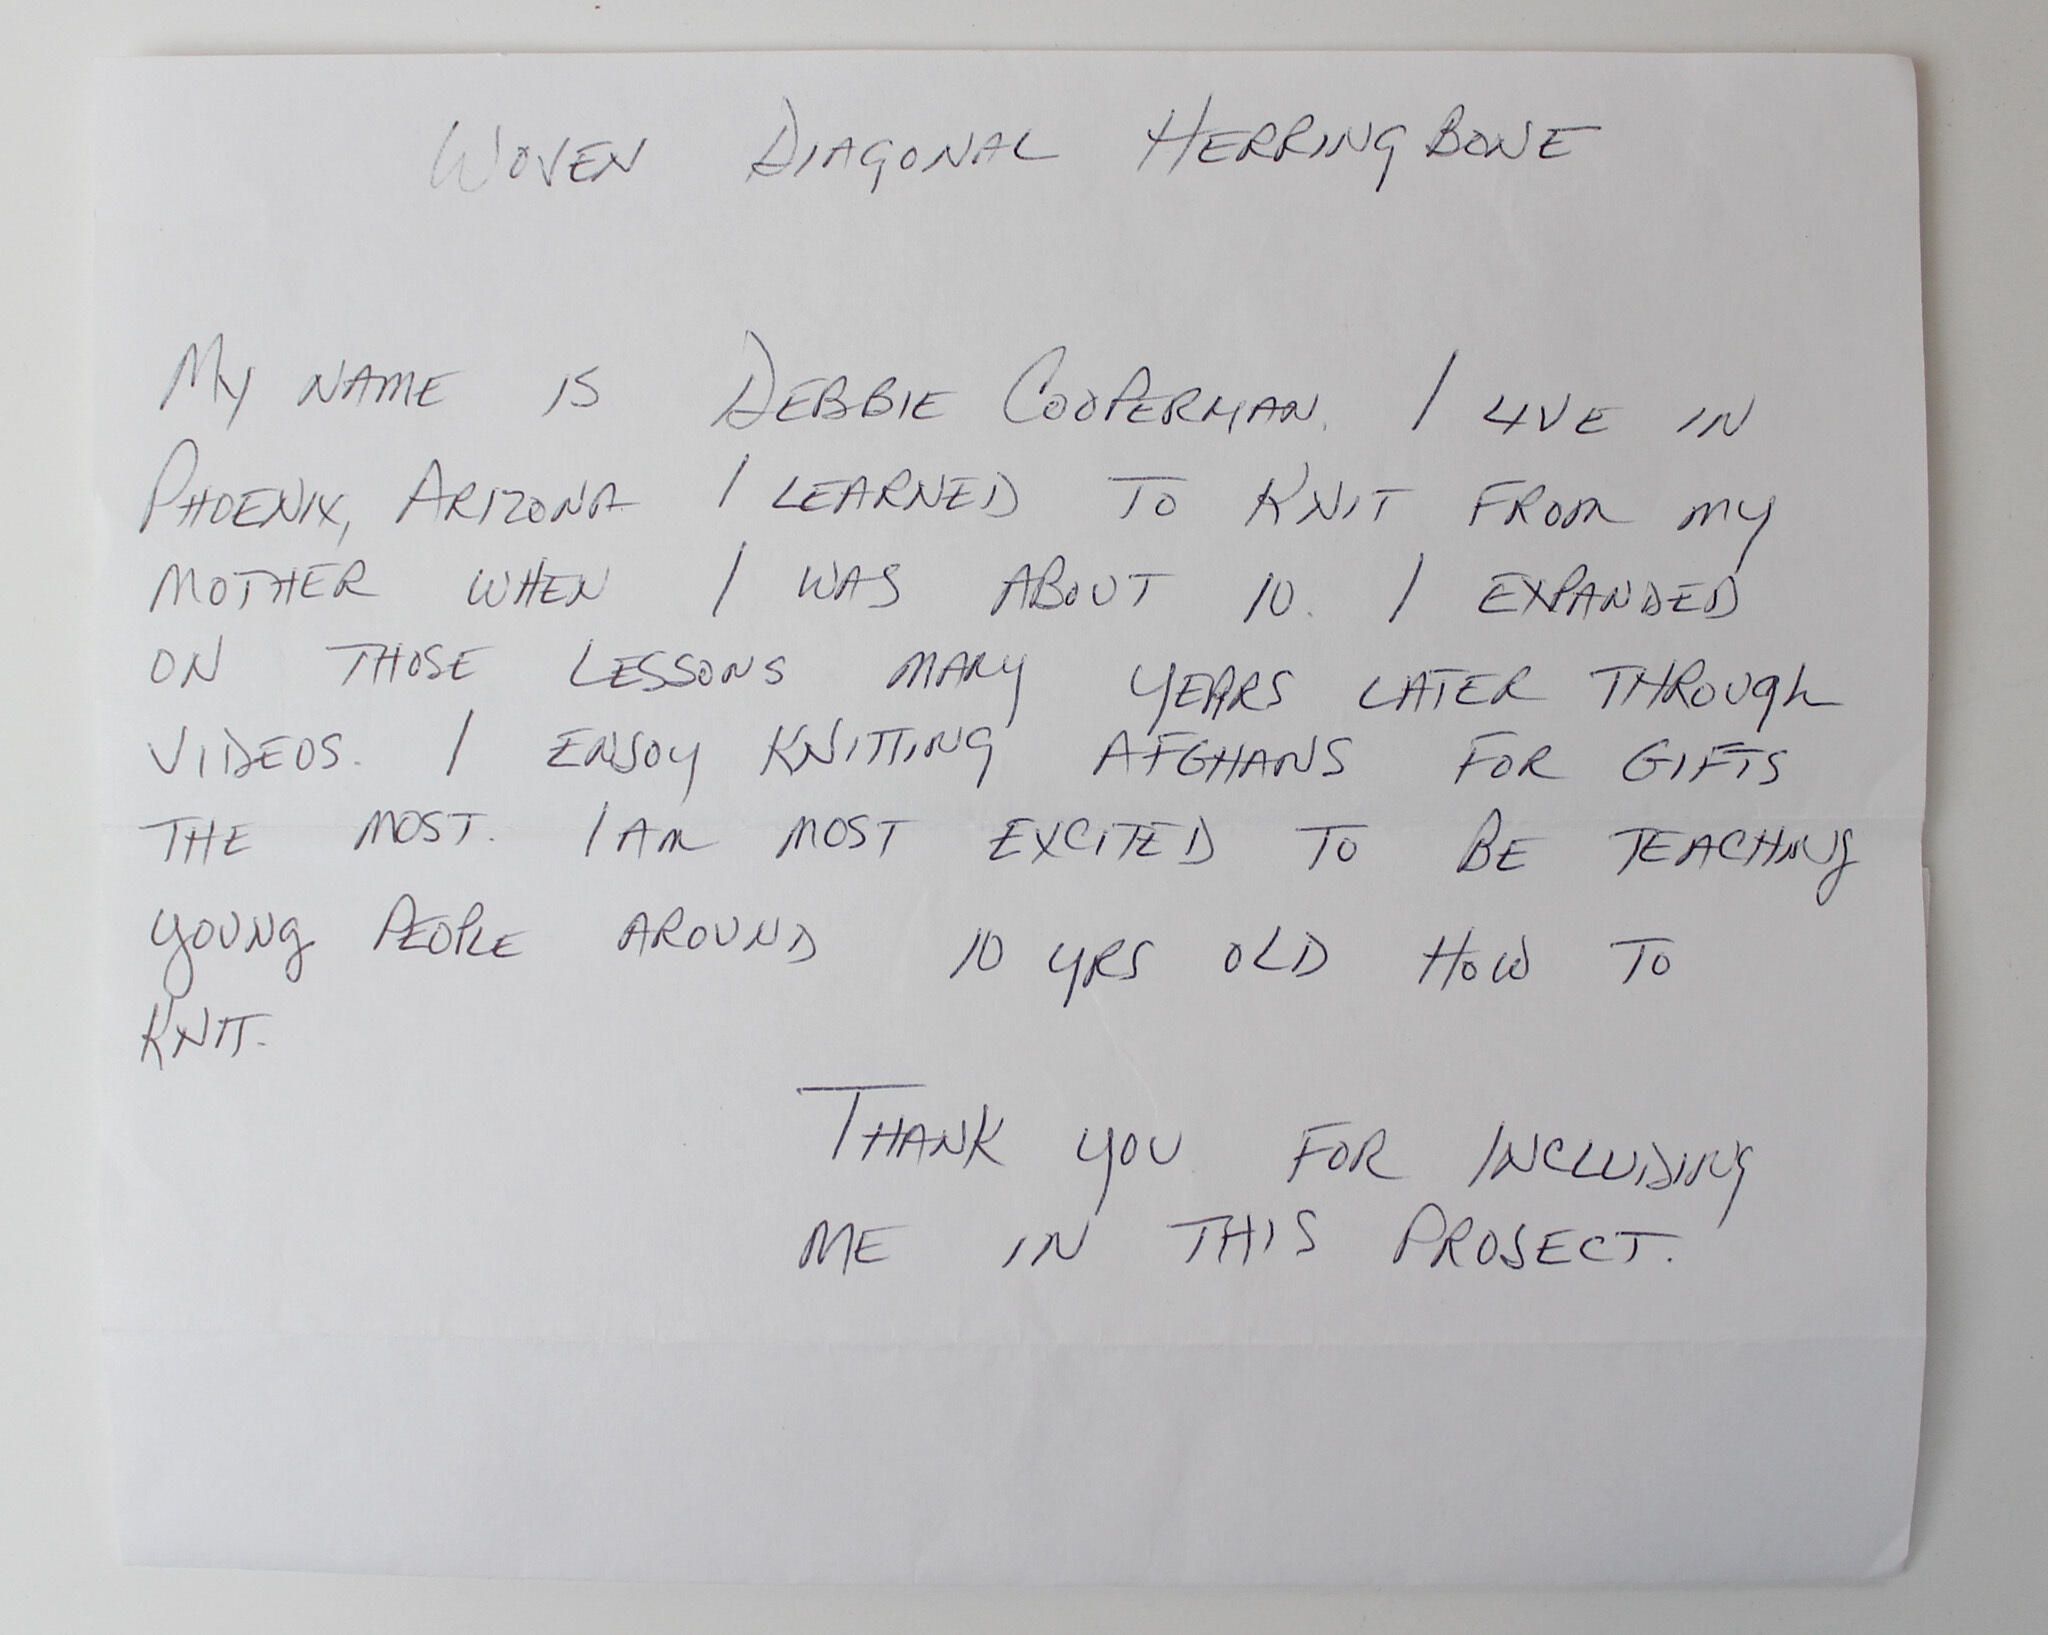 WOVEN DIAGONAL HERRINGBONE
MY NAME IS DEBBIE COOPERMAN. I LIVE IN
PHOENIX, ARIZONA I LEARNED TO KNIT FROM MY
MOTHER WHEN I WAS ABOUT 10. I EXPANDED
ON THOSE LESSONS MANY YEARS LATER THROUGH
VIDEOS. I ENJOY KNITTING AFGHANS FOR GIFTS
THE MOST. I AM MOST EXCITED TO BE TEACHING
YOUNG PEOPLE AROUND 10 YRS OLD HOW TO
KNIT.
THANK YOU FOR INCLUDING
ME IN THIS PROJECT.